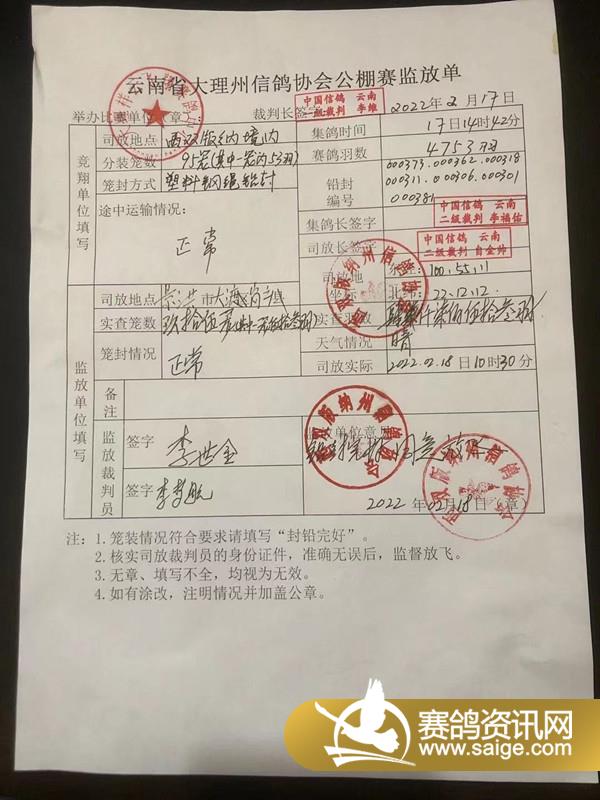 云南省大理州信鸽协会公棚赛监放单
举办比赛单位（章） 裁判长签字 2022年2月17日
中国信鸽 云南
二级裁判 李维
竞翔单位填写
司放地点 西双版纳境内 集鸽时间 17日14时42分
分装笼数 95笼(其中一笼内53羽) 赛鸽羽数 4753羽
笼封方式 塑料钢绳铅封 铅封编号 000373.000362.000318
000311.000306.000301
000381
途中运输情况: 正常
集鸽长签字 中国信鸽 云南
二级裁判 李福佑
司放长签字 中国信鸽 云南
二级裁判 自金帅
司放地 100.55.11
坐标 北纬:22.12.12
监放单位填写
司放地点
实查笼数 实查羽数
笼封情况 正常 天气情况 晴
司放实际 2022.02.18日10时30分
备注
监放裁判员 签字 李世金 单位意见
签字
2022年02月18日(章)
西双版纳州信鸽协会
西双版纳州信鸽协会
西双版纳州信鸽协会
注：1. 笼装情况符合要求请填写“封铅完好”。
2. 核实司放裁判员的身份证件，准确无误后，监督放飞。
3. 无章、填写不全，均视为无效。
4. 如有涂改，注明情况并加盖公章。
赛鸽资讯网
www.saige.com